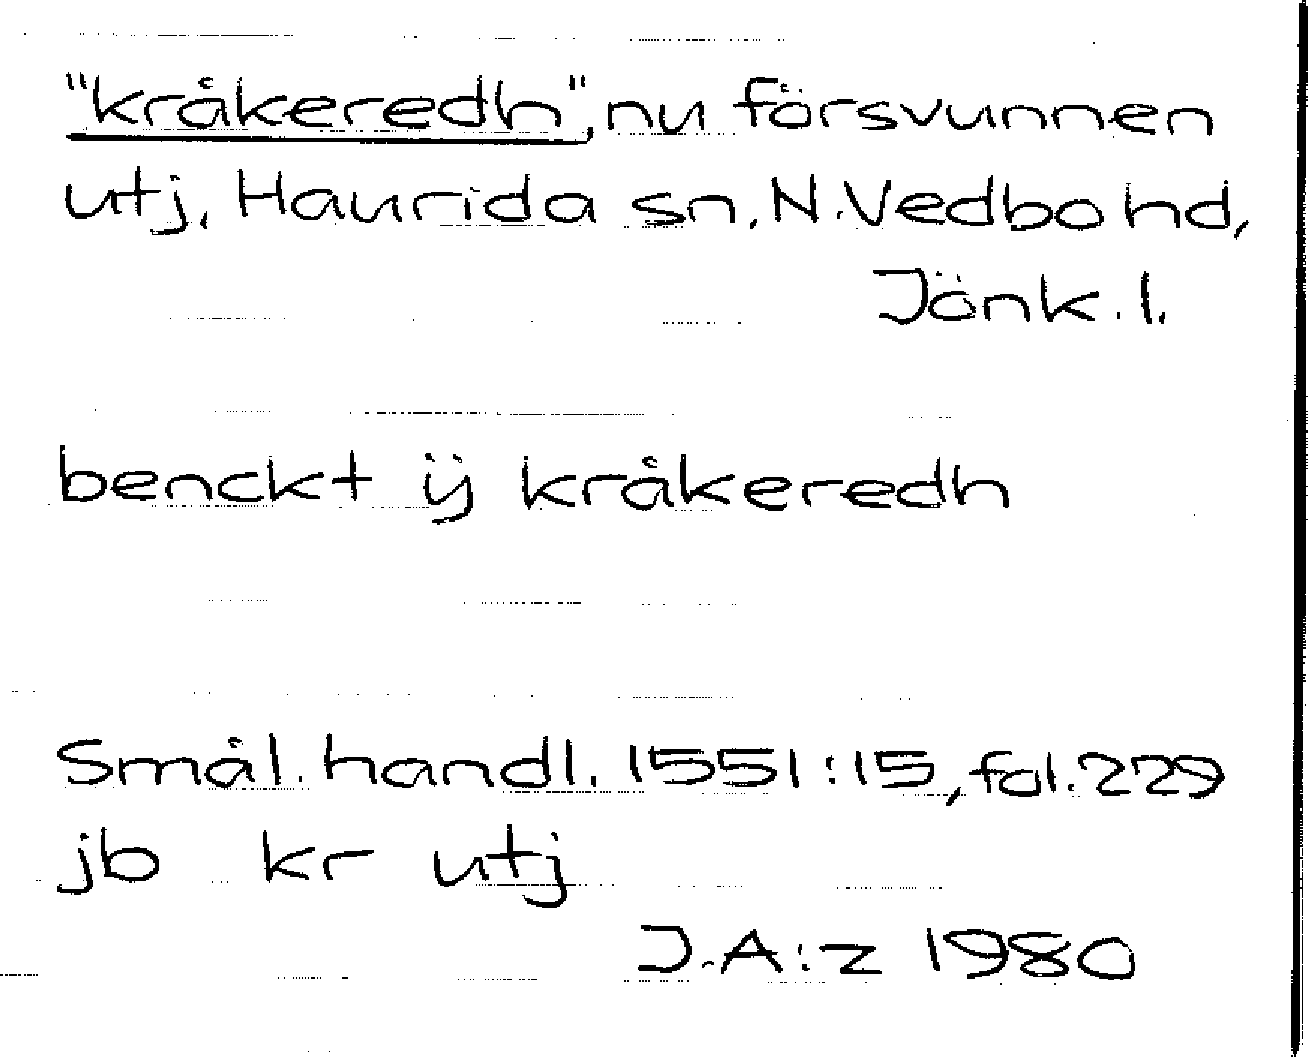 "kråkeredh", nu försvunnen
utj. Haurida sn, N. Vedbo hd,
Jönk. l.
benckt ÿ kråkeredh
Smål. handl. 1551:15, fol. 229
jb kr utj
J.A:z 1980